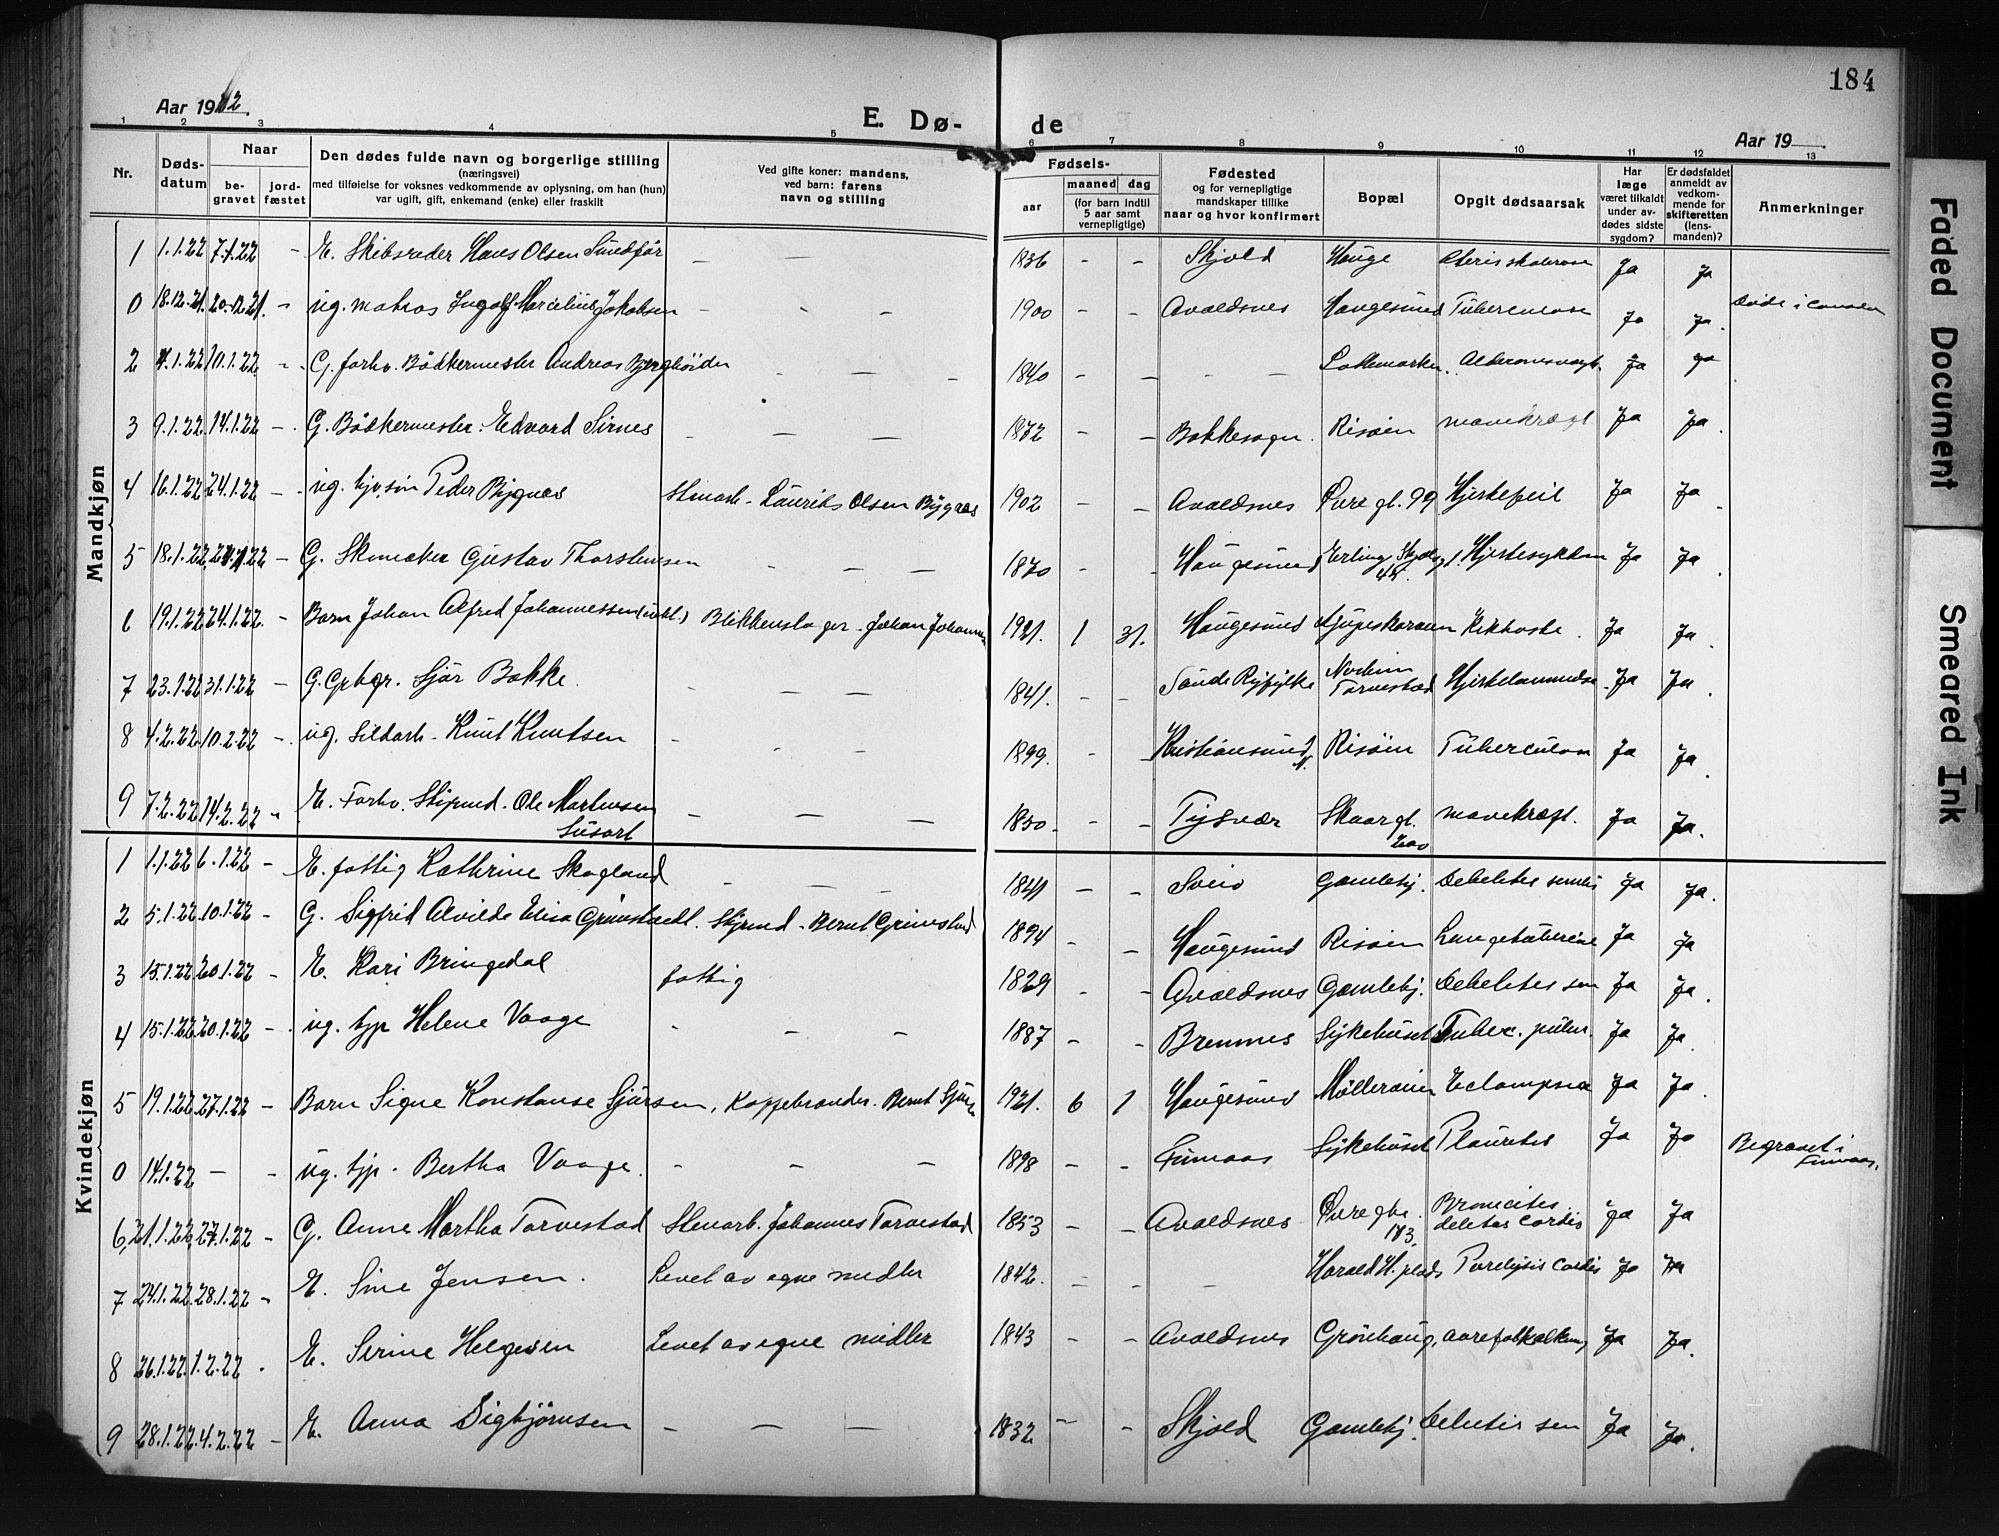 184
Aar 1922.
E. Dø-
de
Aar 19
1 2 3 4 5 6 7 8 9 10 11 12 13
Nr.
Døds-
datum
Naar
be-
gravet
jord-
fæstet
Den dødes fulde navn og borgerlige stilling
(næringsvei)
med tilføielse for voksnes vedkommende av oplysning, om han (hun)
var ugift, gift, enkemand (enke) eller fraskilt
Ved gifte koner: mandens,
ved barn: farens
navn og stilling
Fødsels-
aar
maaned
dag
(for barn indtil
5 aar samt
vernepligtige)
Fødested
og for vernepligtige
mandskaper tillike
naar og hvor konfirmert
Bopæl
Opgit dødsaarsak
Har
læge
været tilkaldt
under av-
dødes sidste
sygdom?
Er dødsfaldet
anmeldt av
vedkom-
mende for
skifteretten
(lens-
manden)?
Anmerkninger
Mandkjøn
1 1.1.22 7.1.22 - E. Skibsreder Hans Olsen Sundfør - - 1836 - - Skjold Hauge Ja Ja
0 18.12.21. 20.12.21. - ug. matros Ingolf Marcelius Jakobsen - - - 1900 - - Avaldsnes Haugesund Tuberculose Ja Ja.
2 4.1.22 10.1.22 - G. forhv. Bødkermester Andreas - - - 1840 - - - - Ja Ja
3 9.1.22 14.1.22 - G. Bødkermester Edvard Sirnes - - - 1872 - - Bokkesogn. Risøen mavekræft Ja Ja.
4 16.1.22 24.1.22 - ug. Peder Bygnes Stenarb. Laurits Olsen Bygnes 1902 - - Avaldsnes Øvre gt. 99 Hjertefeil Ja Ja
5 18.1.22 24.1.22 - G. Skomaker Gustav Thorstensen - - - 1870 - - Haugesund Erling Skjalg. 45. Hjertesykdom Ja Ja.
6 19.1.22 24.1.22. - Barn Johan Alfred Johannessen Blikkenslager. Johan Johannes 1921. 1 31. Haugesund Djupeskaraen Kikhoste. Ja Ja.
7 23.1.22 31.1.22 - G. Grbgr. Sjør Bokke. - - - 1841. - - Sande Ryfylke Nordein Torvestad Ja Ja.
8 4.2.22 10.2.22 - ug. Sildarb. Knut Knutsen - - - 1899. - - Kristiansund N. Risøen Tuberculose Ja Ja.
9 7.2.22 14.2.22 - E. Forhv. Skipsmd. Ole Martensen
Susort - - - 1850. - - Tysvær Skaargt. mavekræft. Ja Ja.
Kvindekjøn
1 1.1.22 6.1.22 - E. fattig Kathrine Skogland - - - 1841 - - Sveio Gamlehj. Debelites senilis Ja Ja.
2 5.1.22 10.1.22 - G. Sigfrid Alvilde Elisa Grimstvedt. Skipsmd. Bernt Grimstved 1894 - - Haugesund Risøen Lungetuberculose Ja Ja
3 15.1.22 20.1.22 - E. Kari Bringedal fattig 1829 - - Avaldsnes Gamlehj. Debelites sen Ja Ja.
4 15.1.22 20.1.22 - ug. tjp Helene Vaage - - - 1887 - - Bremnes Sykehuset Tuberc. pulm. Ja Ja.
5 19.1.22 27.1.22 - Barn Signe Konstanse Sjursen, Bernt Sjursen 1921. 6 1 Haugesund Møllerveien Eclampsia Ja Ja.
0 14.1.22 - - ug. tjp. Bertha Vaage. - - - 1898 - - Finnaas Sykehuset Plauretes Ja Ja Begravet i
Finnaas.
6 21.1.22. 27.1.22 - G. Anne Martha Torvestad Stenarb. Johannes Torvestad 1853 - - Avaldsnes Øvregt. 183. Broncites deletas cordis Ja Ja
7 24.1.22. 28.1.22 - E. Sine Jensen. Levet av egne midler 1842. - - - Harald H. plads Paralysis Cordis Ja Ja
8 26.1.22. 1.2.22. E. Serine Helgesen Levet av egne midler 1843 - - Avaldsnes Grønhaug, aareforkalkning Ja Ja.
9 28.1.22. 4.2.22 - E. Anna Sigbjørnsen - - - 1832 - - Skjold Gamlehj. Debelitis sen Ja Ja.
Faded Document
Smeared Ink